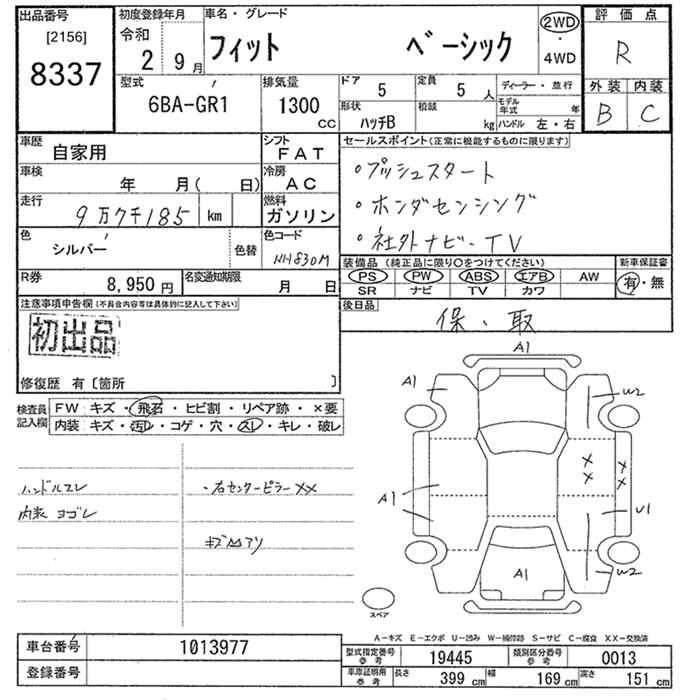 出品番号
[2156]
8337
初度登録年月
令和
2 9月
車名・グレード
フィット ベーシック
2WD
・
4WD
評価点
R
外装 内装
B C
型式
6BA-GR1
排気量
1300
CC
ドア 5
定員 5 人
ディーラー・並行
形状 ハッチB
積載 kg
モデル年式 年
ハンドル 左・右
車歴 自家用
シフト FAT
車検 年 月( 日)
冷房 AC
走行 9万7千185 km
燃料 ガソリン
色 シルバー 色替
色コード NH830M
R券 8,950円
名変通知期限 月 日
セールスポイント(正常に機能するものに限ります)
・プッシュスタート
・ホンダセンシング
・社外ナビ・TV
装備品 (純正品に限り○をつけてください)
新車保証書
PS PW ABS エアB AW
SR ナビ TV カワ
有・無
後日品
保・取
注意事項申告欄 (不具合内容等は具体的に記入して下さい)
初出品
修復歴 有〔箇所 〕
検査員記入欄
FW キズ・飛石・ヒビ割・リペア跡・×要
内装 キズ・汚レ・コゲ・穴・スレ・キレ・破レ
ハンドルスレ
内装 ヨゴレ
・右センターピラーXX
キズ凹アリ
A1
A1
W2
XX
XX
A1
U1
A1
W2
スペア
A-キズ E-エクボ U-凹み W-補修跡 S-サビ C-腐食 XX-交換済
車台番号 1013977
登録番号
型式指定番号 参考 19445
類別区分番号 参考 0013
車庫証明用 参考
長さ 399 cm
幅 169 cm
高さ 151 cm